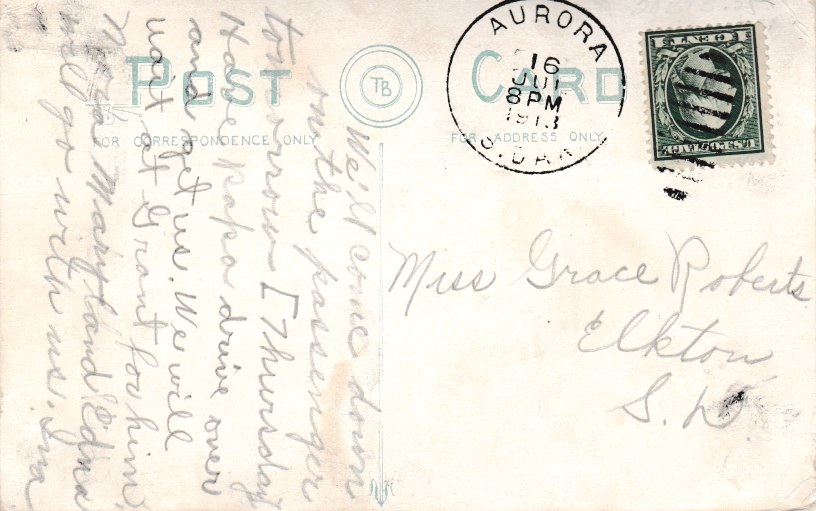 POST CARD
TB
FOR CORRESPONDENCE ONLY
FOR ADDRESS ONLY
AURORA
16
JUL
8 PM
1913
S. DAK.
1 CENT 1
U.S. POSTAGE
We'll come down
on the passenger
tomorrow [Thursday
Have papa drive over
and get us. We will
wait at Grant for him.
Mary and Edna
will go with us. Ina
Miss Grace Roberts
Elkton
S. D